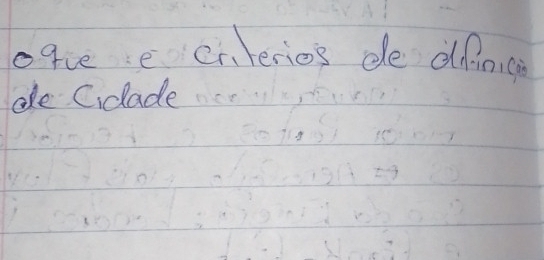 oque e criterios de difinição
de Cidade